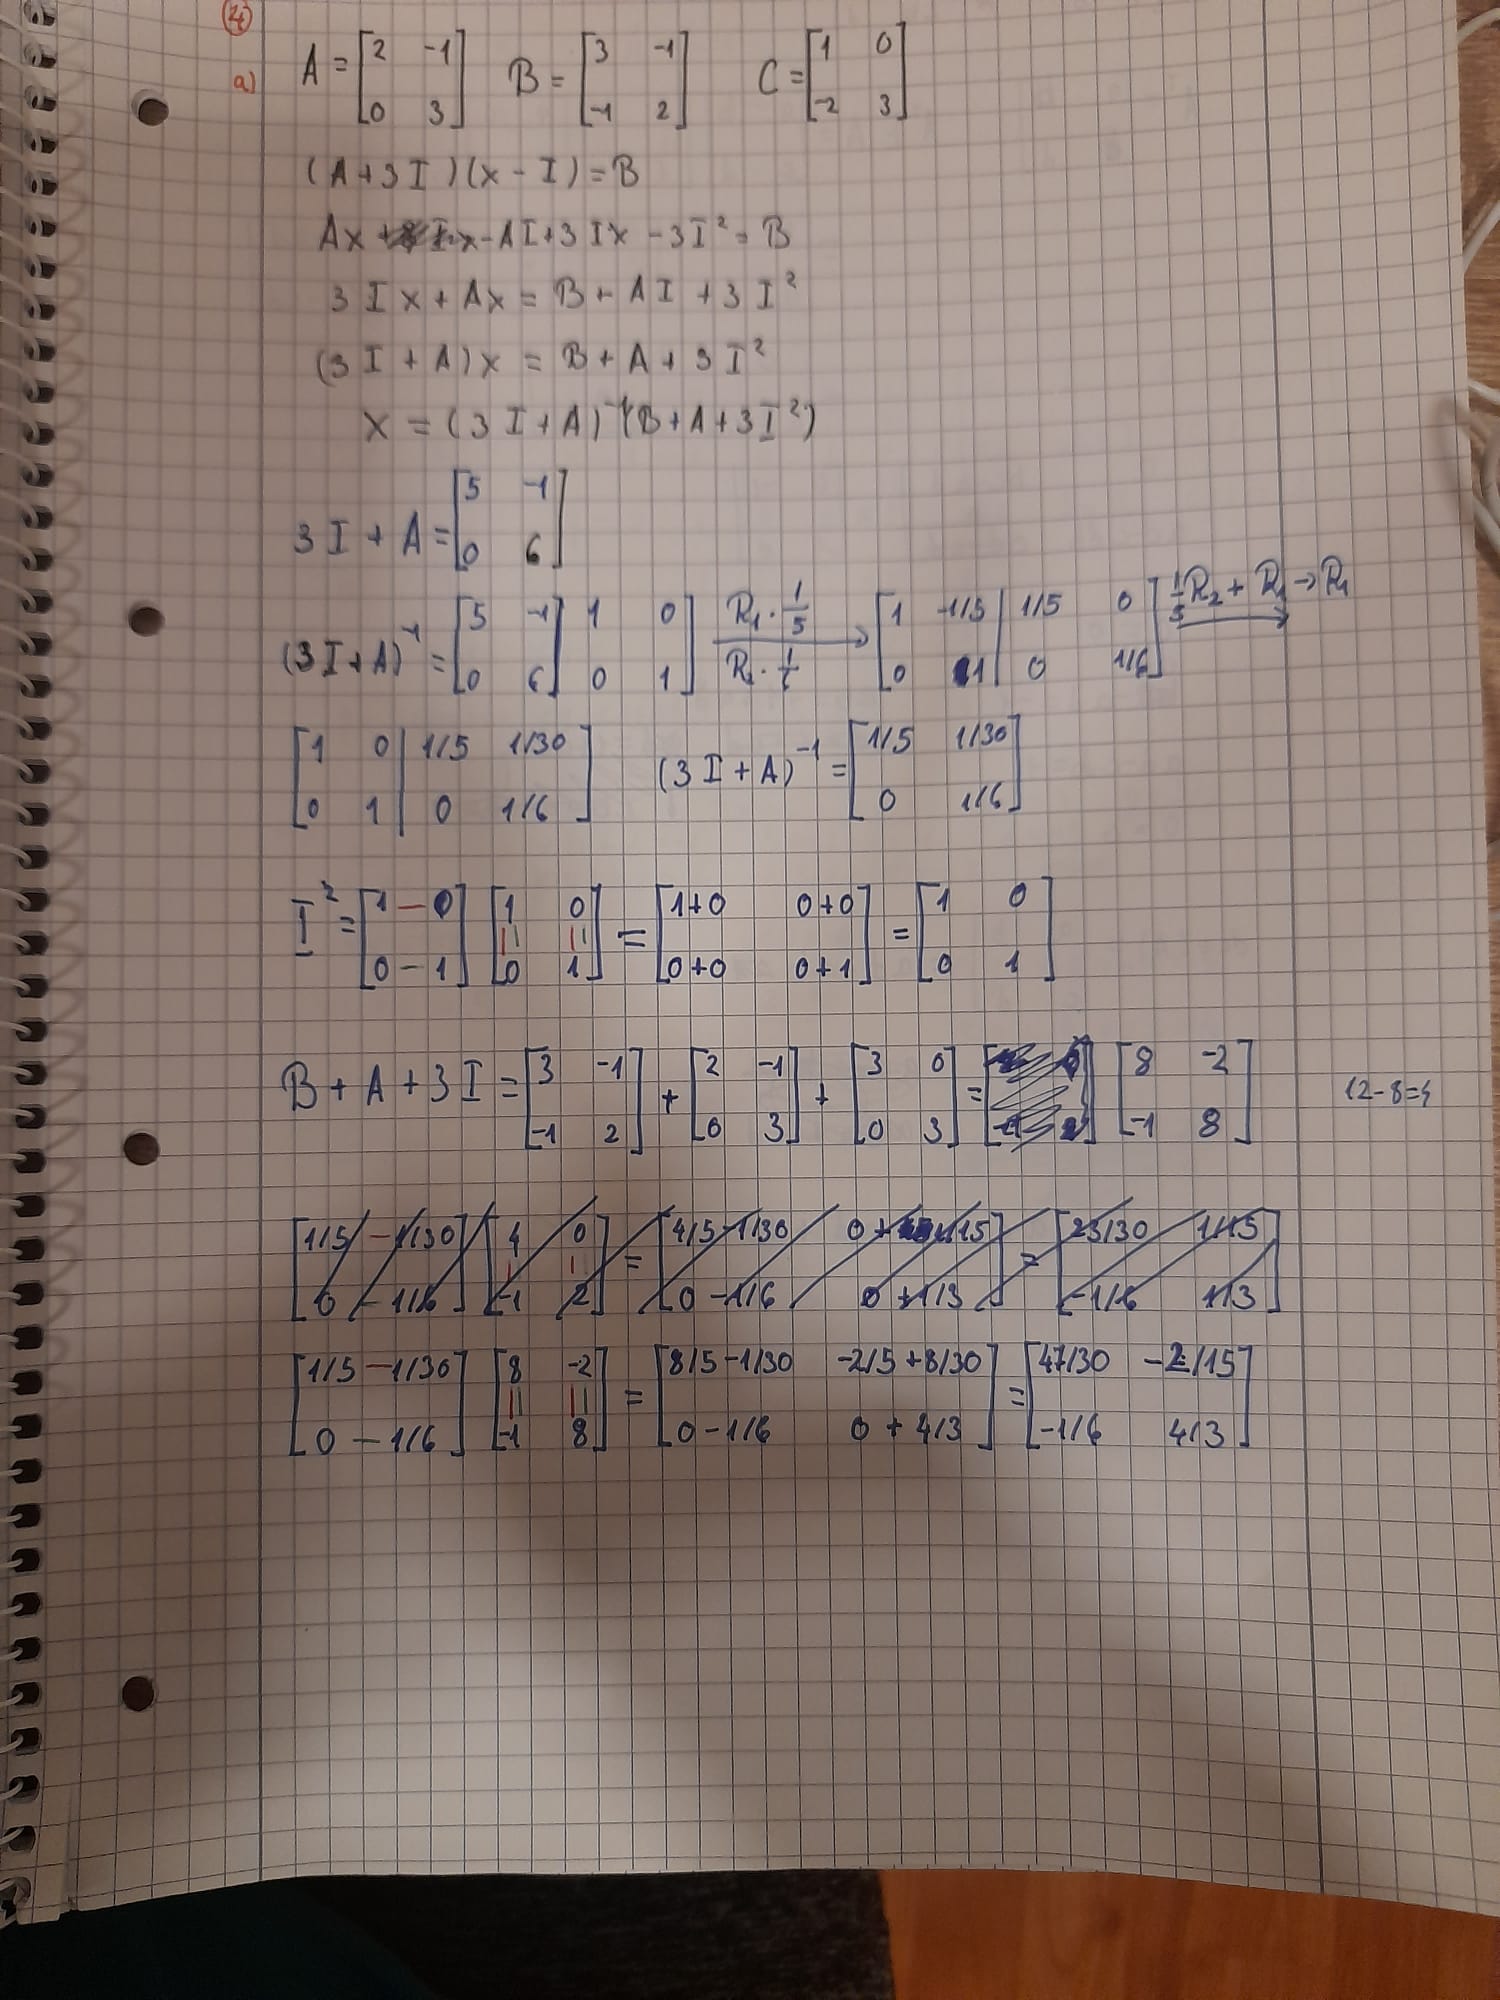 4
a) A = [2 -1; 0 3] B = [3 -1; -1 2] C = [1 0; -2 3]
(A+3I)(x-I)=B
Ax -AI+3Ix-3I²=B
3Ix+Ax=B+AI+3I²
(3I+A)x=B+A+3I²
x=(3I+A)⁻¹(B+A+3I²)
3I+A=[5 -1; 0 6]
(3I+A)⁻¹=[5 -1 | 1 0; 0 6 | 0 1] R₁·1/5 R₁·1/6 → [1 -1/5 | 1/5 0; 0 1 | 0 1/6] 1/5R₂+R₁→R₁
[1 0 | 1/5 1/30; 0 1 | 0 1/6] (3I+A)⁻¹=[1/5 1/30; 0 1/6]
I²=[1 - 0; 0 - 1] [1 0; 0 1] = [1+0 0+0; 0+0 0+1] = [1 0; 0 1]
B+A+3I=[3 -1; -1 2] + [2 -1; 0 3] + [3 0; 0 3] = [8 -2; -1 8] 12-8=4
[1/5 - 1/30; 0 - 1/6] [4 0; -1 2] = [4/5-1/30 0+1/15; 0-1/6 0+1/3] = [23/30 1/15; -1/6 1/3]
[1/5 - 1/30; 0 - 1/6] [8 -2; -1 8] = [8/5-1/30 -2/5+8/30; 0-1/6 0+4/3] = [47/30 -2/15; -1/6 4/3]